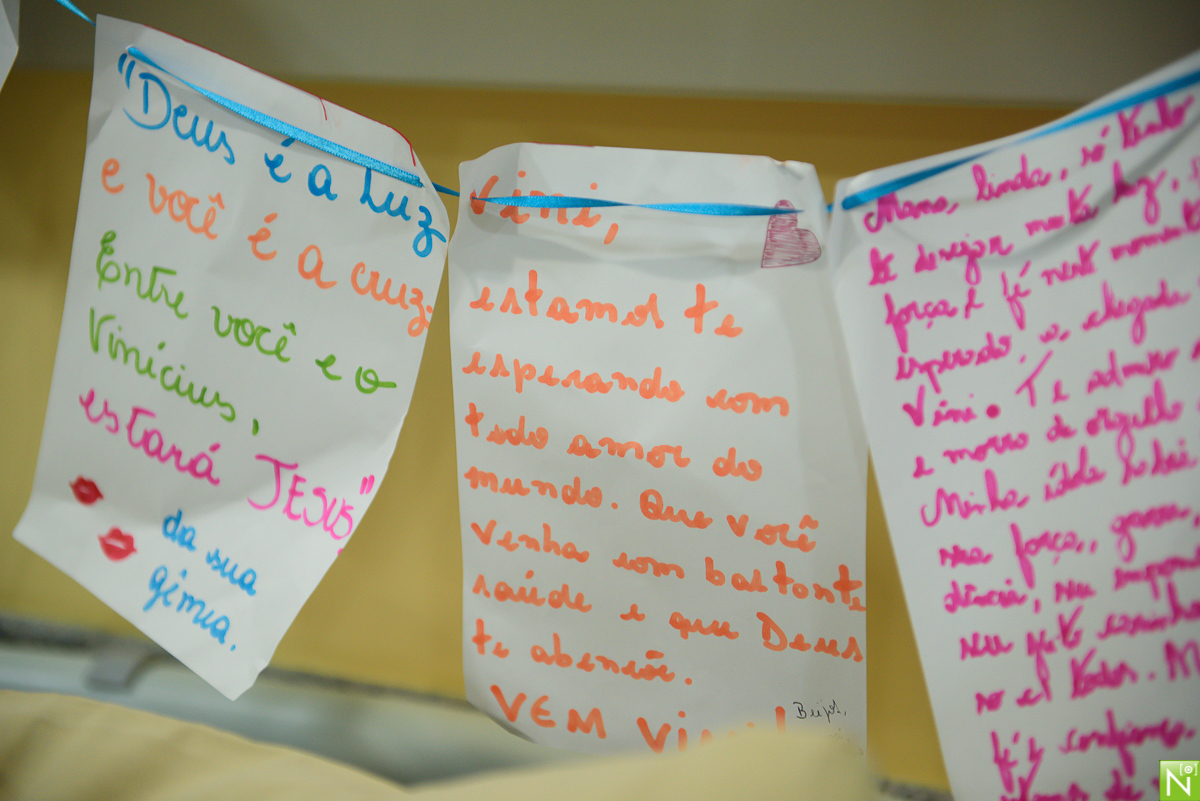 "Deus é a Luz
e você é a cruz.
Entre você e o
Vinícius,
estará JESUS".
da sua
gêmea.
Vini,
estamos te
esperando com
todo amor do
mundo. Que você
venha com bastante
saúde e que Deus
te abençõe.
VEM Vini!
Beijos,
Mana, linda, só tenho
te desejar muita luz,
força e fé neste momento
esperado, a chegada
Vini. Te admiro
e morro de orgulho
Minha
sua força, garra,
seu
seu jeito
fé e confiança.
N